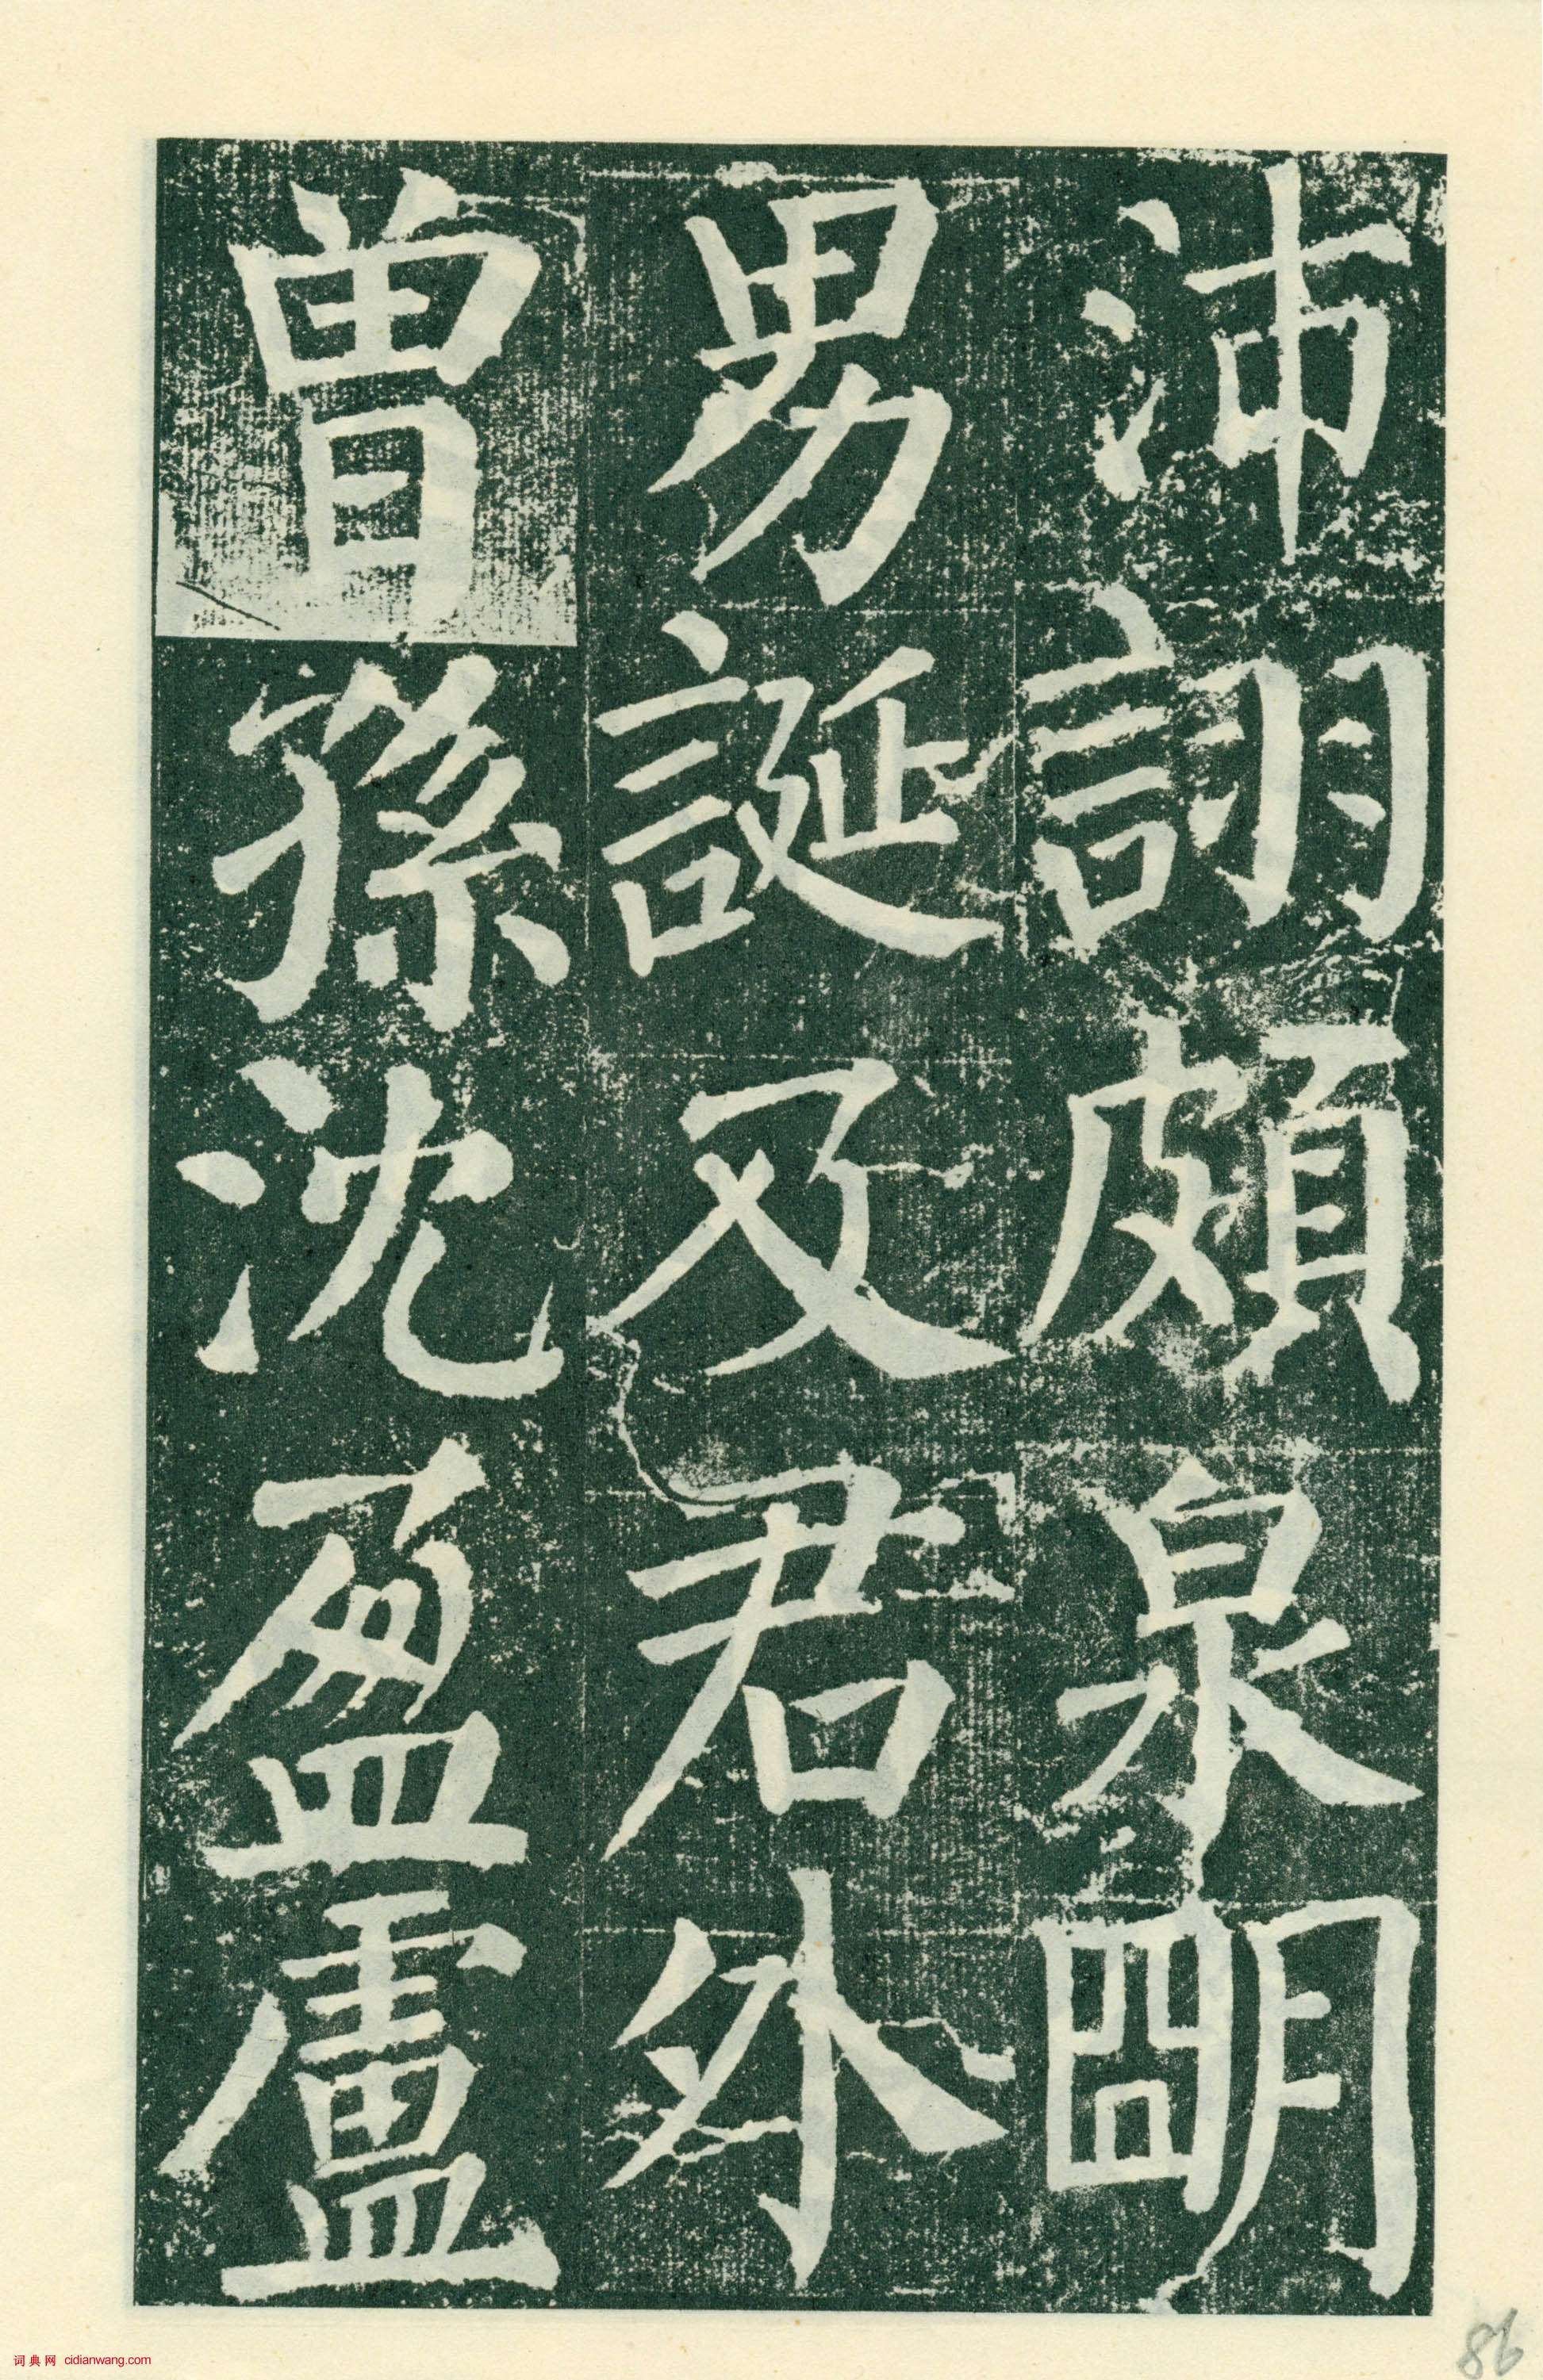 沛詡頗泉明
男誕及君外
曾孫沈盈盧
86
词典网 cidianwang.com